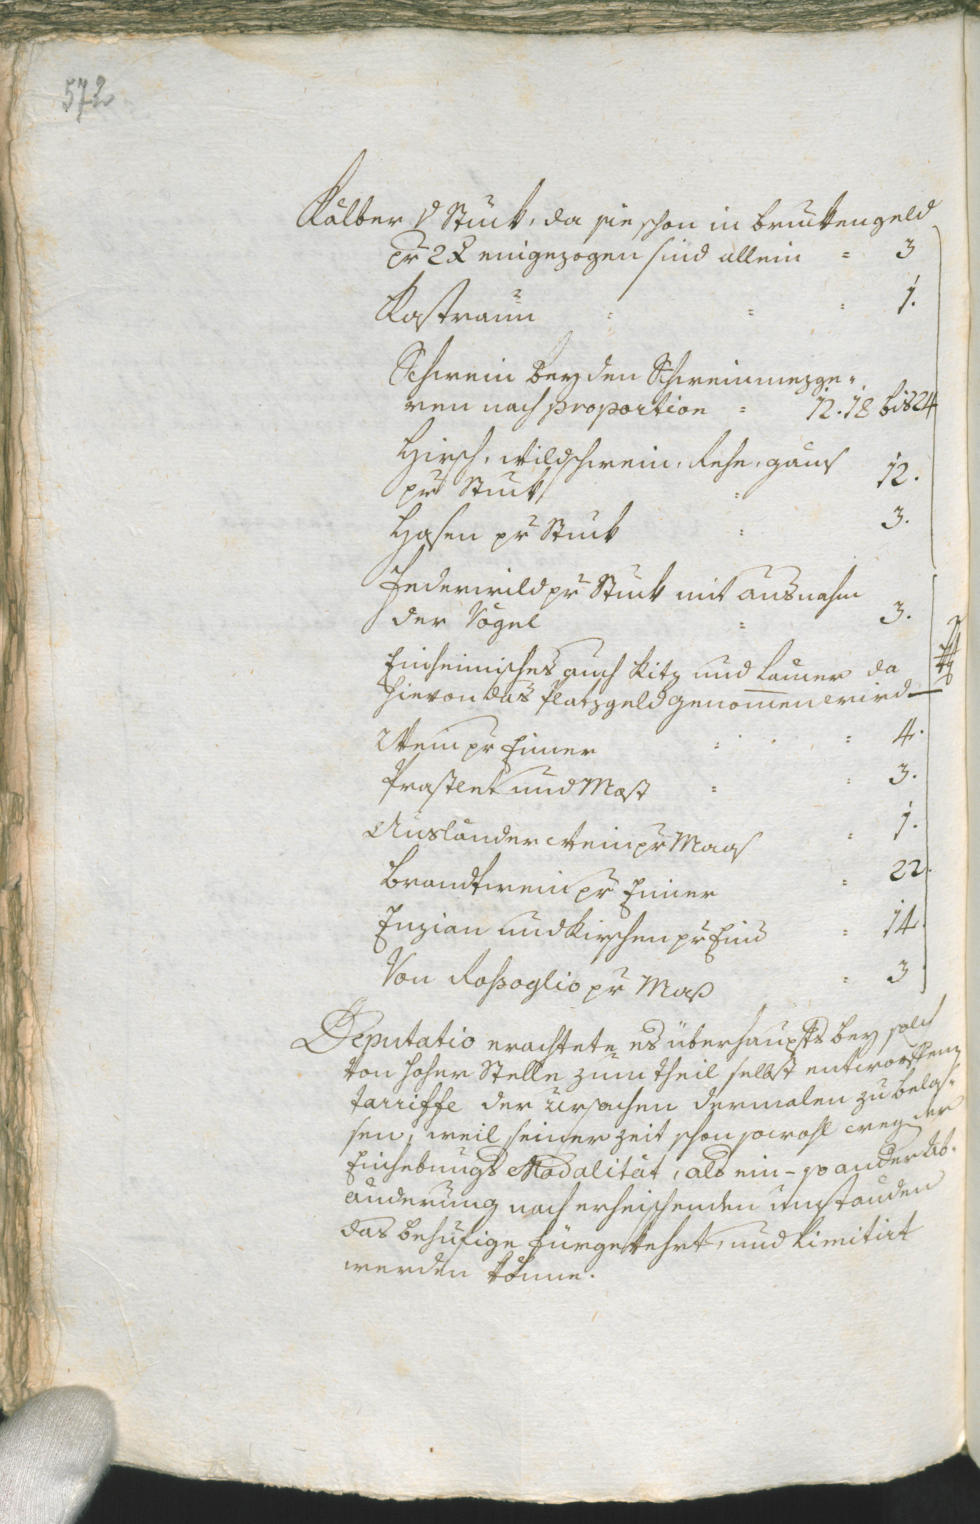 572
Kälber p Stuck, da sie schon in bruckengeld
pr 2 x eingezogen sind allein = 3
Kastraun = = = 1.
Schwein bey den Schweinmezge-
ren nach proportion = 12. 18 bis 24
Hirsch, wildschwein, Rehe, gäms
pr Stuck = 12.
Hasen pr Stuck = 3.
Federwild pr Stuck mit ausnahm
der Vögel = 3.
Einheimisches auch Kitz und Lämer da
hievon das platzgeld genomen wird —
Wein pr Eimer = = 4.
Praslent und Most = = 3.
Ausländer Wein pr Maas = 1.
Brandtwein pr Eimer = 22.
Enzian und Kirschen pr Eim = 14.
Von Rossoglio pr Maß = 3.
xr
Deputatio erachtete es überhaupts bey solch
von hoher Stelle zum theil selbst entworffenen
tarriffe der Ursachen dermalen zu belas-
sen, weil seiner zeit schon sowohl weg der
Einhebungs Modalität, als ein- so ander Ab-
änderung nach erheischenden umständen
das behufige fürgekehrt, und limitirt
werden könne.